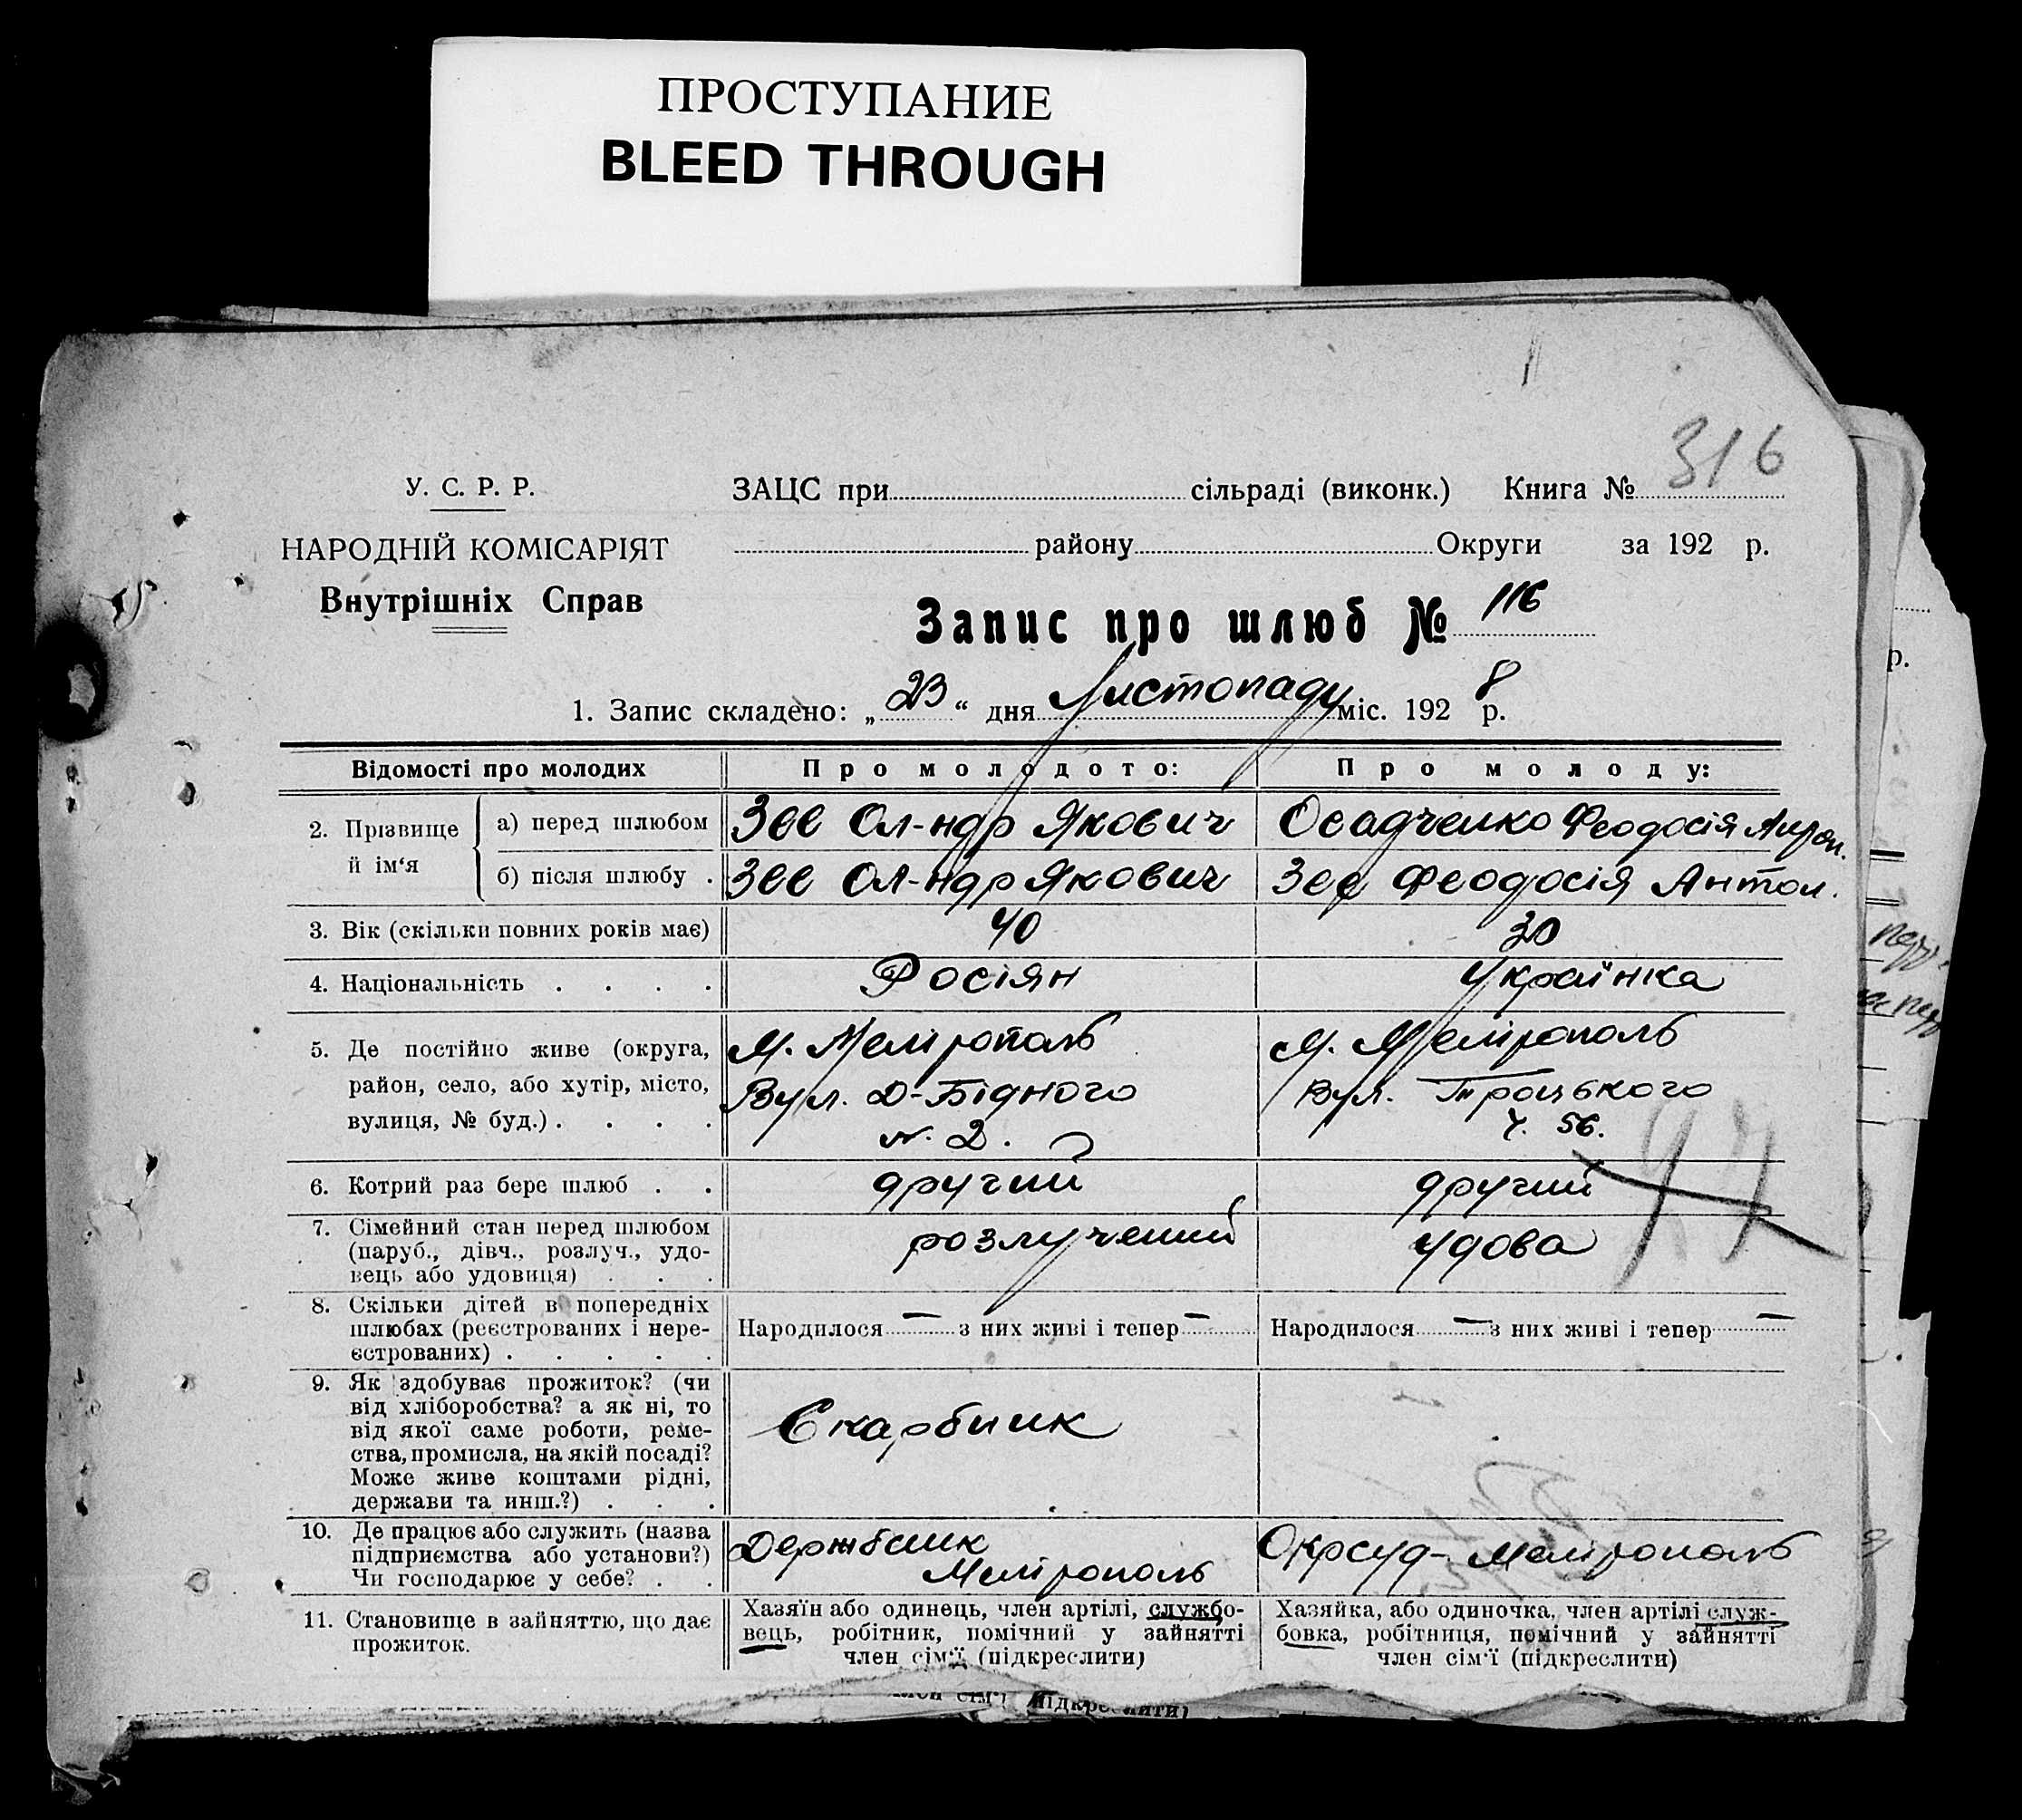 ПРОСТУПАНИЕ
BLEED THROUGH
316
У. С. Р. Р.
ЗАЦС при сільраді (виконк.) Книга №
НАРОДНІЙ КОМІСАРІЯТ
району Округи за 192 р.
Внутрішніх Справ
Запис про шлюб № 116
1. Запис складено: „23“ дня Листопаду міс. 1928 р.
Відомості про молодих
Про молодого:
Про молоду:
2. Прізвище й ім‘я
а) перед шлюбом
Зее Ол-ндр Якович
Осадченко Феодосія
б) після шлюбу .
Зее Ол-ндр Якович
Зее Феодосія Антол.
3. Вік (скільки повних років має)
40
30
4. Національність . . . .
Росіян
Українка
5. Де постійно живе (округа,
район, село, або хутір, місто,
вулиця, № буд.) . . . .
М. Мелірополь
Вул. Д-Бідного
№. 2.
М. Мелірополь
Вул. Троцького
ч. 56.
6. Котрий раз бере шлюб . .
другий
другий
7. Сімейний стан перед шлюбом
(паруб., дівч., розлуч., удо-
вець або удовиця) . . .
розлучений
удова
8. Скільки дітей в попередніх
шлюбах (реєстрованих і нере-
єстрованих) . . . . .
Народилося — з них живі і тепер —
Народилося — з них живі і тепер —
9. Як здобуває прожиток? (чи
від хліборобства? а як ні, то
від якої саме роботи, реме-
ства, промисла, на якій посаді?
Може живе коштами рідні,
держави та инш.?) . . .
Скарбник
10. Де працює або служить (назва
підприємства або установи?)
Чи господарює у себе? . .
Держбанк
Мелірополь
Окрсуд- Мелірополь
11. Становище в зайняттю, що дає
прожиток.
Хазяїн або одинець, член артілі, службо-
вець, робітник, помічний у зайнятті
член сім‘ї (підкреслити)
Хазяйка, або одиночка, член артілі служ-
бовка, робітниця, помічний у зайнятті
член сім‘ї (підкреслити)